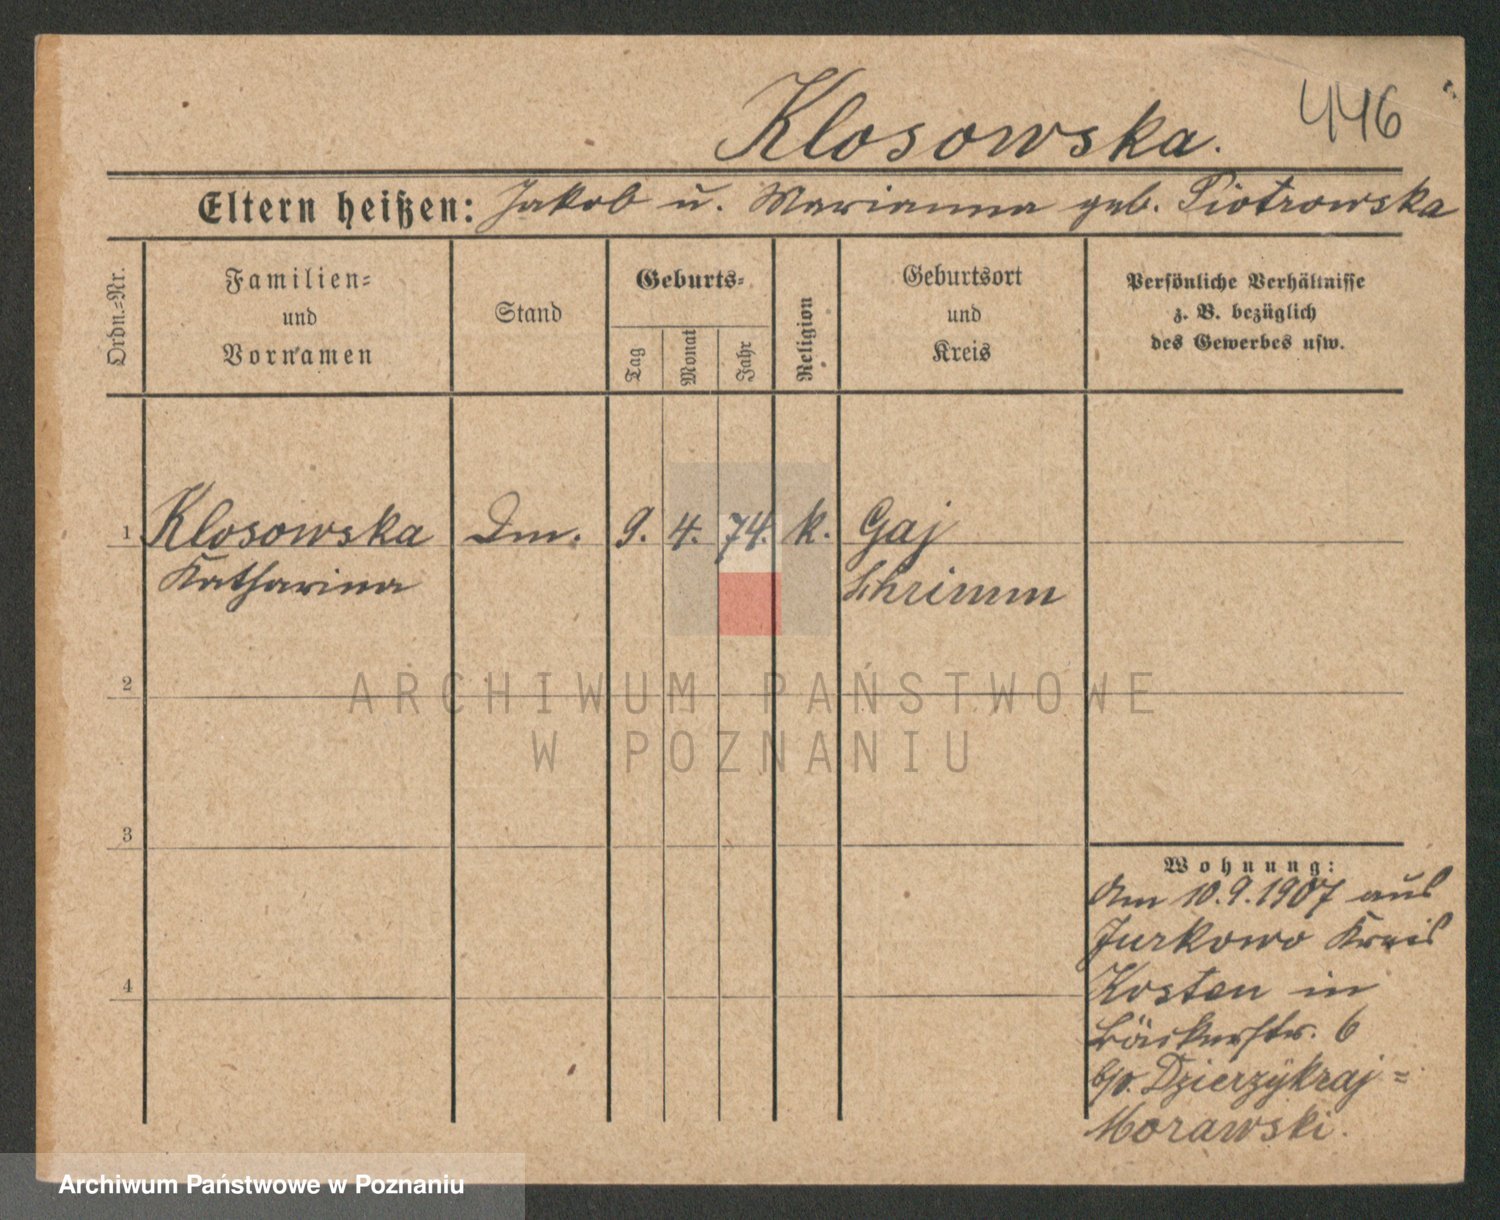 Klosowska.
446
Eltern heißen: Jakob u. Marianna geb. Piotrowska
Ordn.=Nr.
Familien=
und
Vornamen
Stand
Geburts=
Tag
Monat
Jahr
Religion
Geburtsort
und
Kreis
Persönliche Verhältnisse
z. B. bezüglich
des Gewerbes usw.
1 Klosowska Dm. 9. 4. 74. k. Gaj
Katharina Schrimm
2
ARCHIWUM PAŃSTWOWE
W POZNANIU
3
Wohnung:
Am 10.9.1907 aus
Jurkowo Kreis
Kosten in
Bäckerstr. 6
b/v. Dzierzykraj=
Morawski.
4
Archiwum Państwowe w Poznaniu